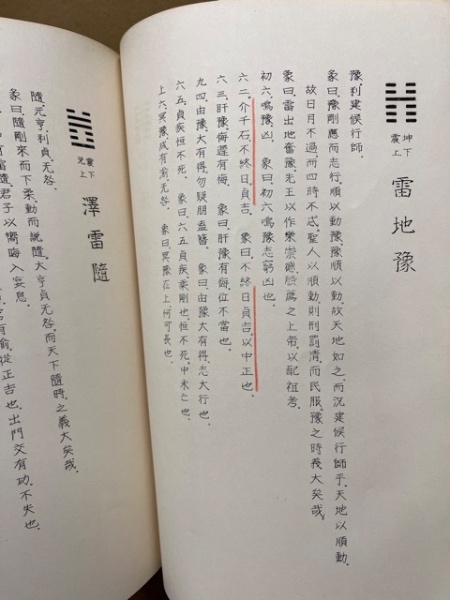 坤下
震上
雷地豫
豫.利建候行師.
彖曰.豫.剛應而志行.順以動.豫.豫順以動.故天地如之.而況建候行師乎.天地以順動.
故日月不過.而四時不忒.聖人以順動.則刑罰清而民服.豫之時義大矣哉.
象曰.雷出地奮.豫.先王以作樂崇德.殷薦之上帝.以配祖考.
初六.鳴豫.凶.象曰.初六鳴豫.志窮凶也.
六二.介于石.不終日.貞吉.象曰.不終日貞吉.以中正也.
六三.盱豫.悔.遲有悔.象曰.盱豫有悔.位不當也.
九四.由豫.大有得.勿疑.朋盍簪.象曰.由豫大有得.志大行也.
六五.貞疾.恒不死.象曰.六五貞疾.乗剛也.恒不死.中未亡也.
上六.冥豫.成有渝.无咎.象曰.冥豫在上.何可長也.
震下
兌上
澤雷隨
隨.元亨利貞.无咎.
彖曰.隨.剛來而下柔.動而説.隨.大亨貞无咎.而天下隨時.之義大矣哉.
有雷隨.君子以嚮晦入宴息.
有渝.從正吉也.出門交有功.不失也.